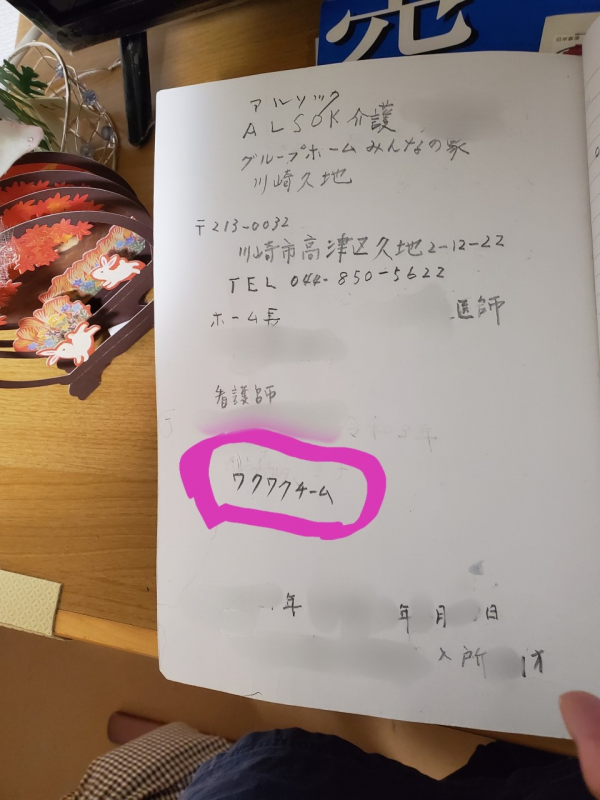 アルソック
ALSOK介護
グループホームみんなの家
川崎久地
〒213-0032
川崎市高津区久地2-12-22
TEL 044-850-5622
ホーム長
医師
看護師
ワクワクチーム
年 年 月 日
入所 才